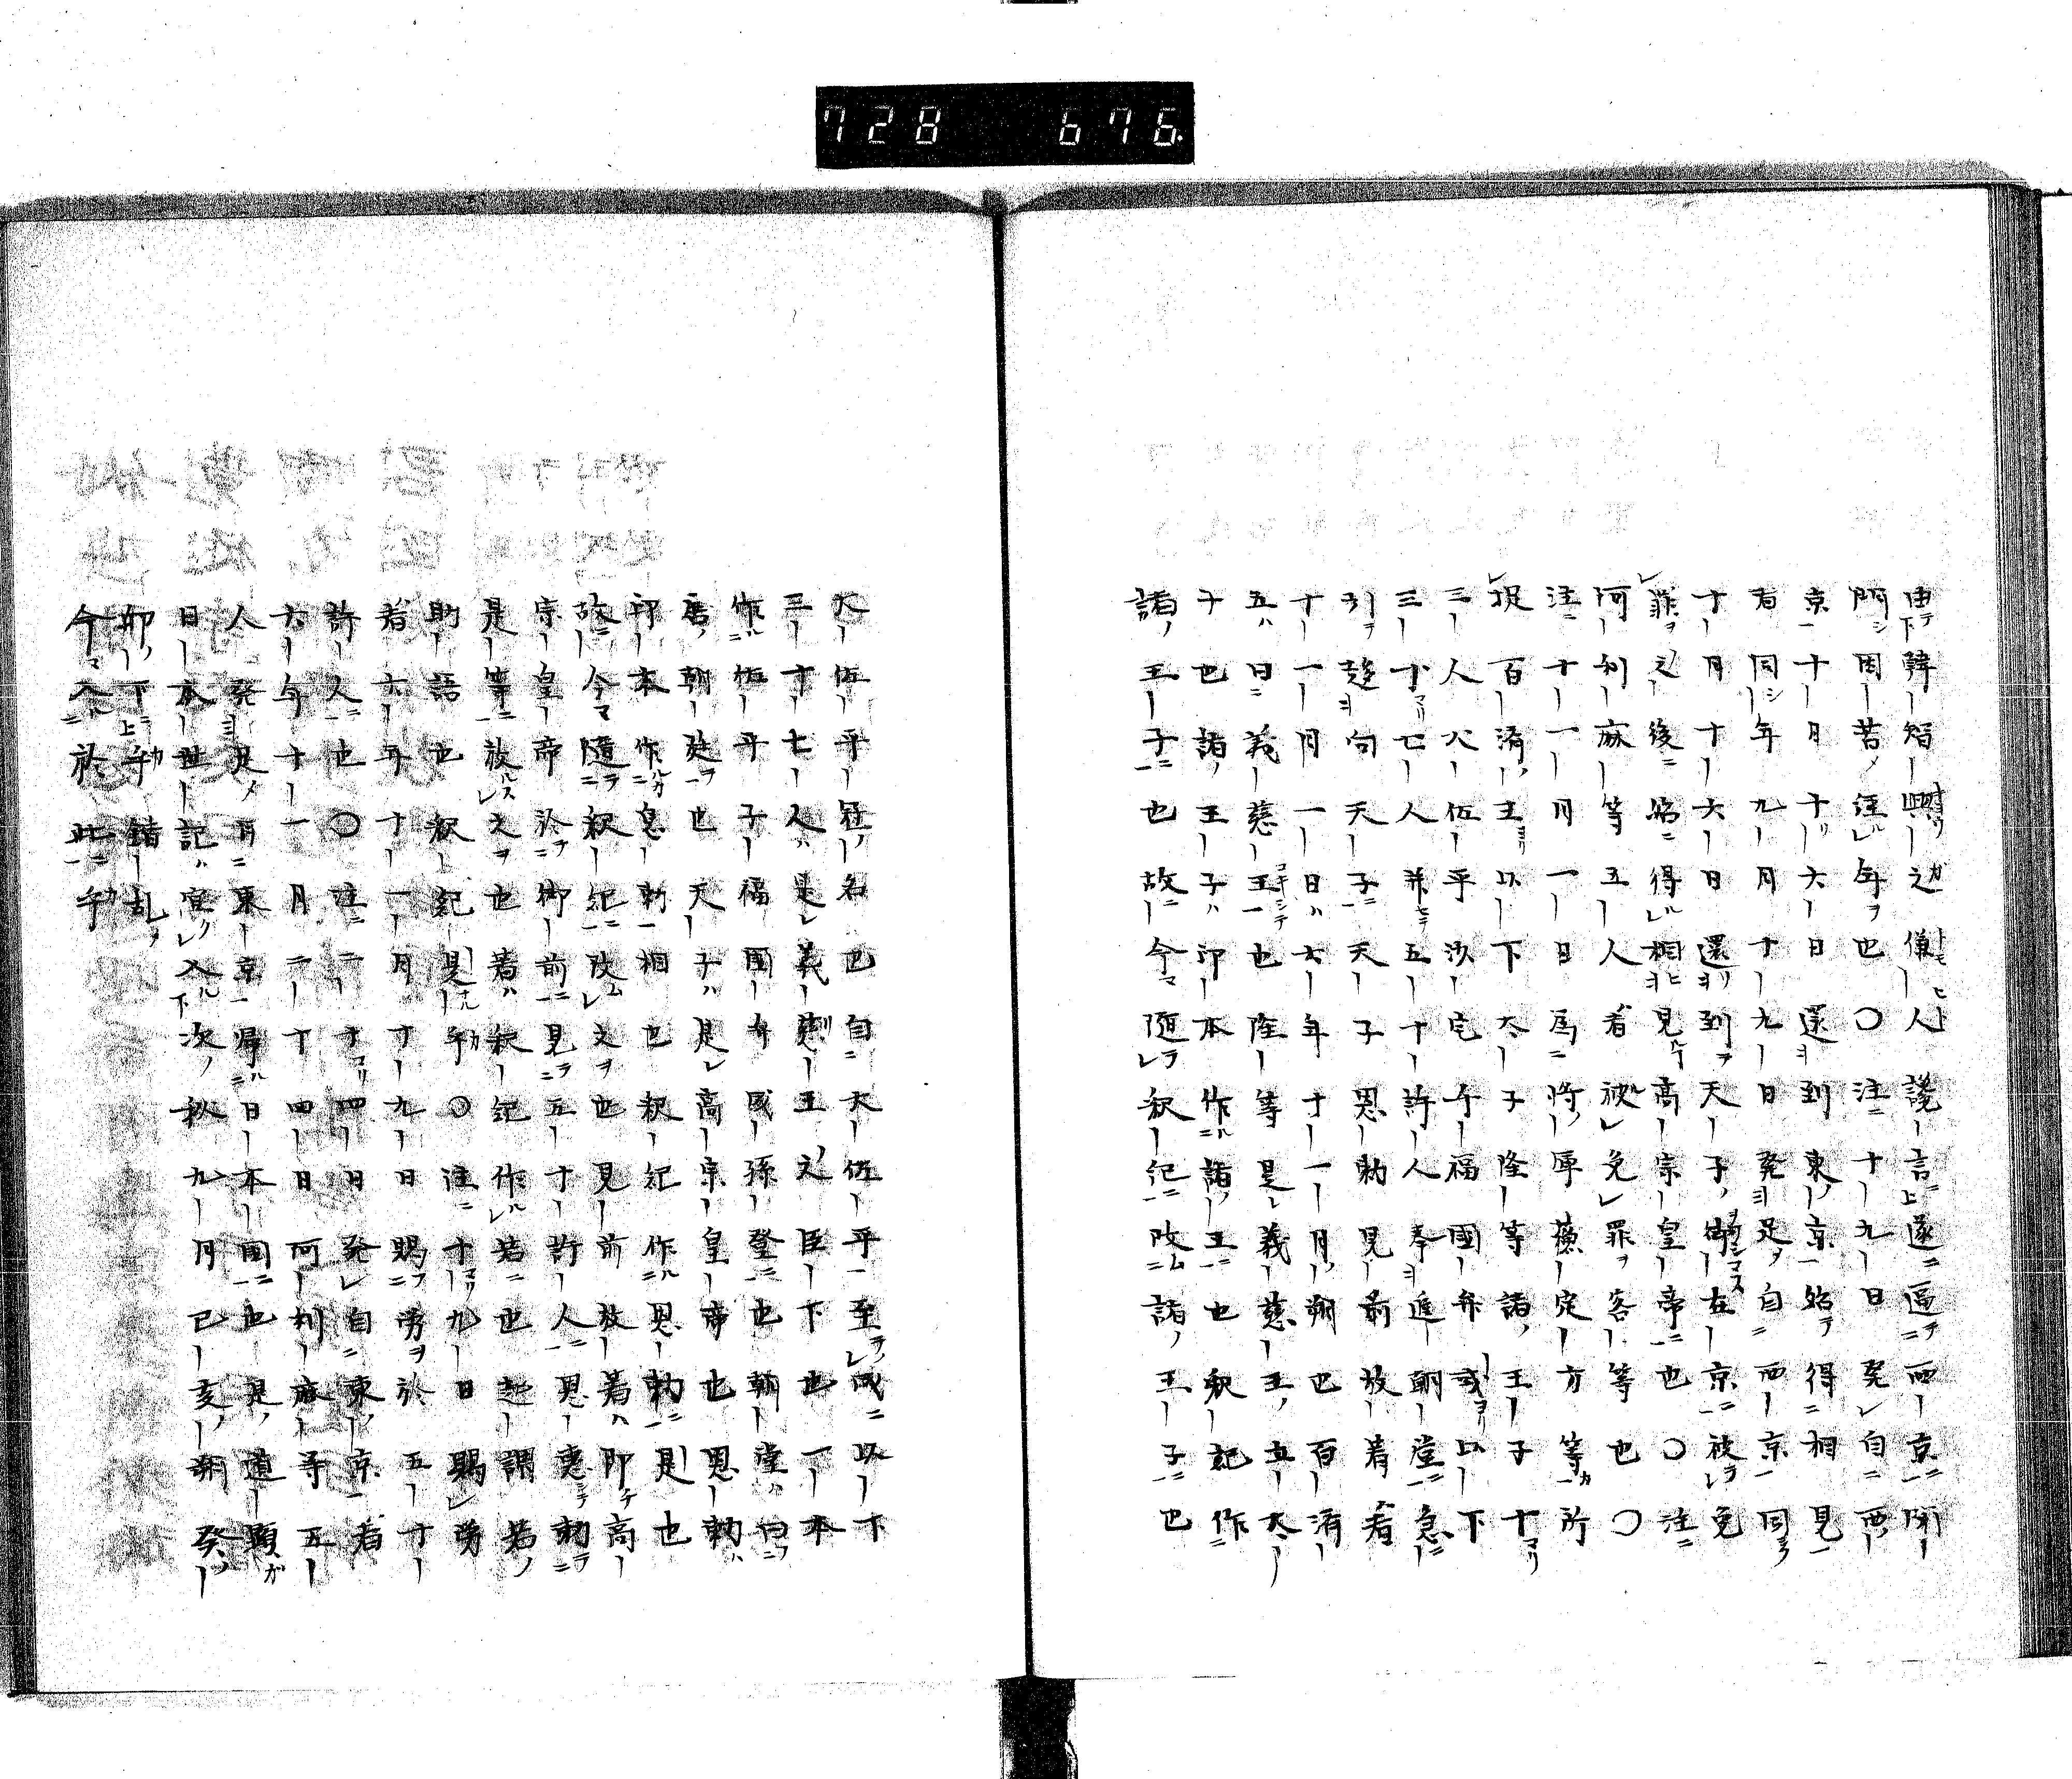 728 676
由韓智興之傔人讒言遂逼西京閇
閇困苦経年也〇注十九日発自西
京十月十六日還到東京始得相見
者同年九月十九日発足自西京同
十月十六日還到天子御在京被免
罪之後始得相見高宗皇帝也〇注
阿利麻等五人者被免罪客等也〇
注十一月一日為将軍蘓定方等所
捉百済王以下太子隆等諸王子十
三人大佐平沙宅千福國弁成以下
三十七人并五十許人奉進朝堂急
引趍向天子天子恩勅見前放着者
十一月一日六年十一月朔也百済
五日義慈王也隆等是義慈王五太
子也諸王子印本作諸王也釈記作
諸王子也故今随釈紀改諸王子也
大佐平冠名也自大佐平至成以下
三十七人是義慈王之臣下也一本
作佐平子福國弁成孫登也朝堂白
唐朝廷也天子是高宗皇帝也恩勅
印本作息勅相也釈紀作恩勅是也
故今随釈紀改文也見前放着即高
宗皇帝於御前見五十許人恩恵勅
是等放之也着釈紀作若也起謂若
助語也釈紀是乎〇注十九日賜労
者六年十一月十九日賜労於五十
許人也〇注二十四日発自東京者
六年十一月二十四日阿利麻等五
人発是月東京帰日本國也是遣顕
日本世記宜入次秋九月己亥朔癸
卯下乎錯乱
今入於此乎